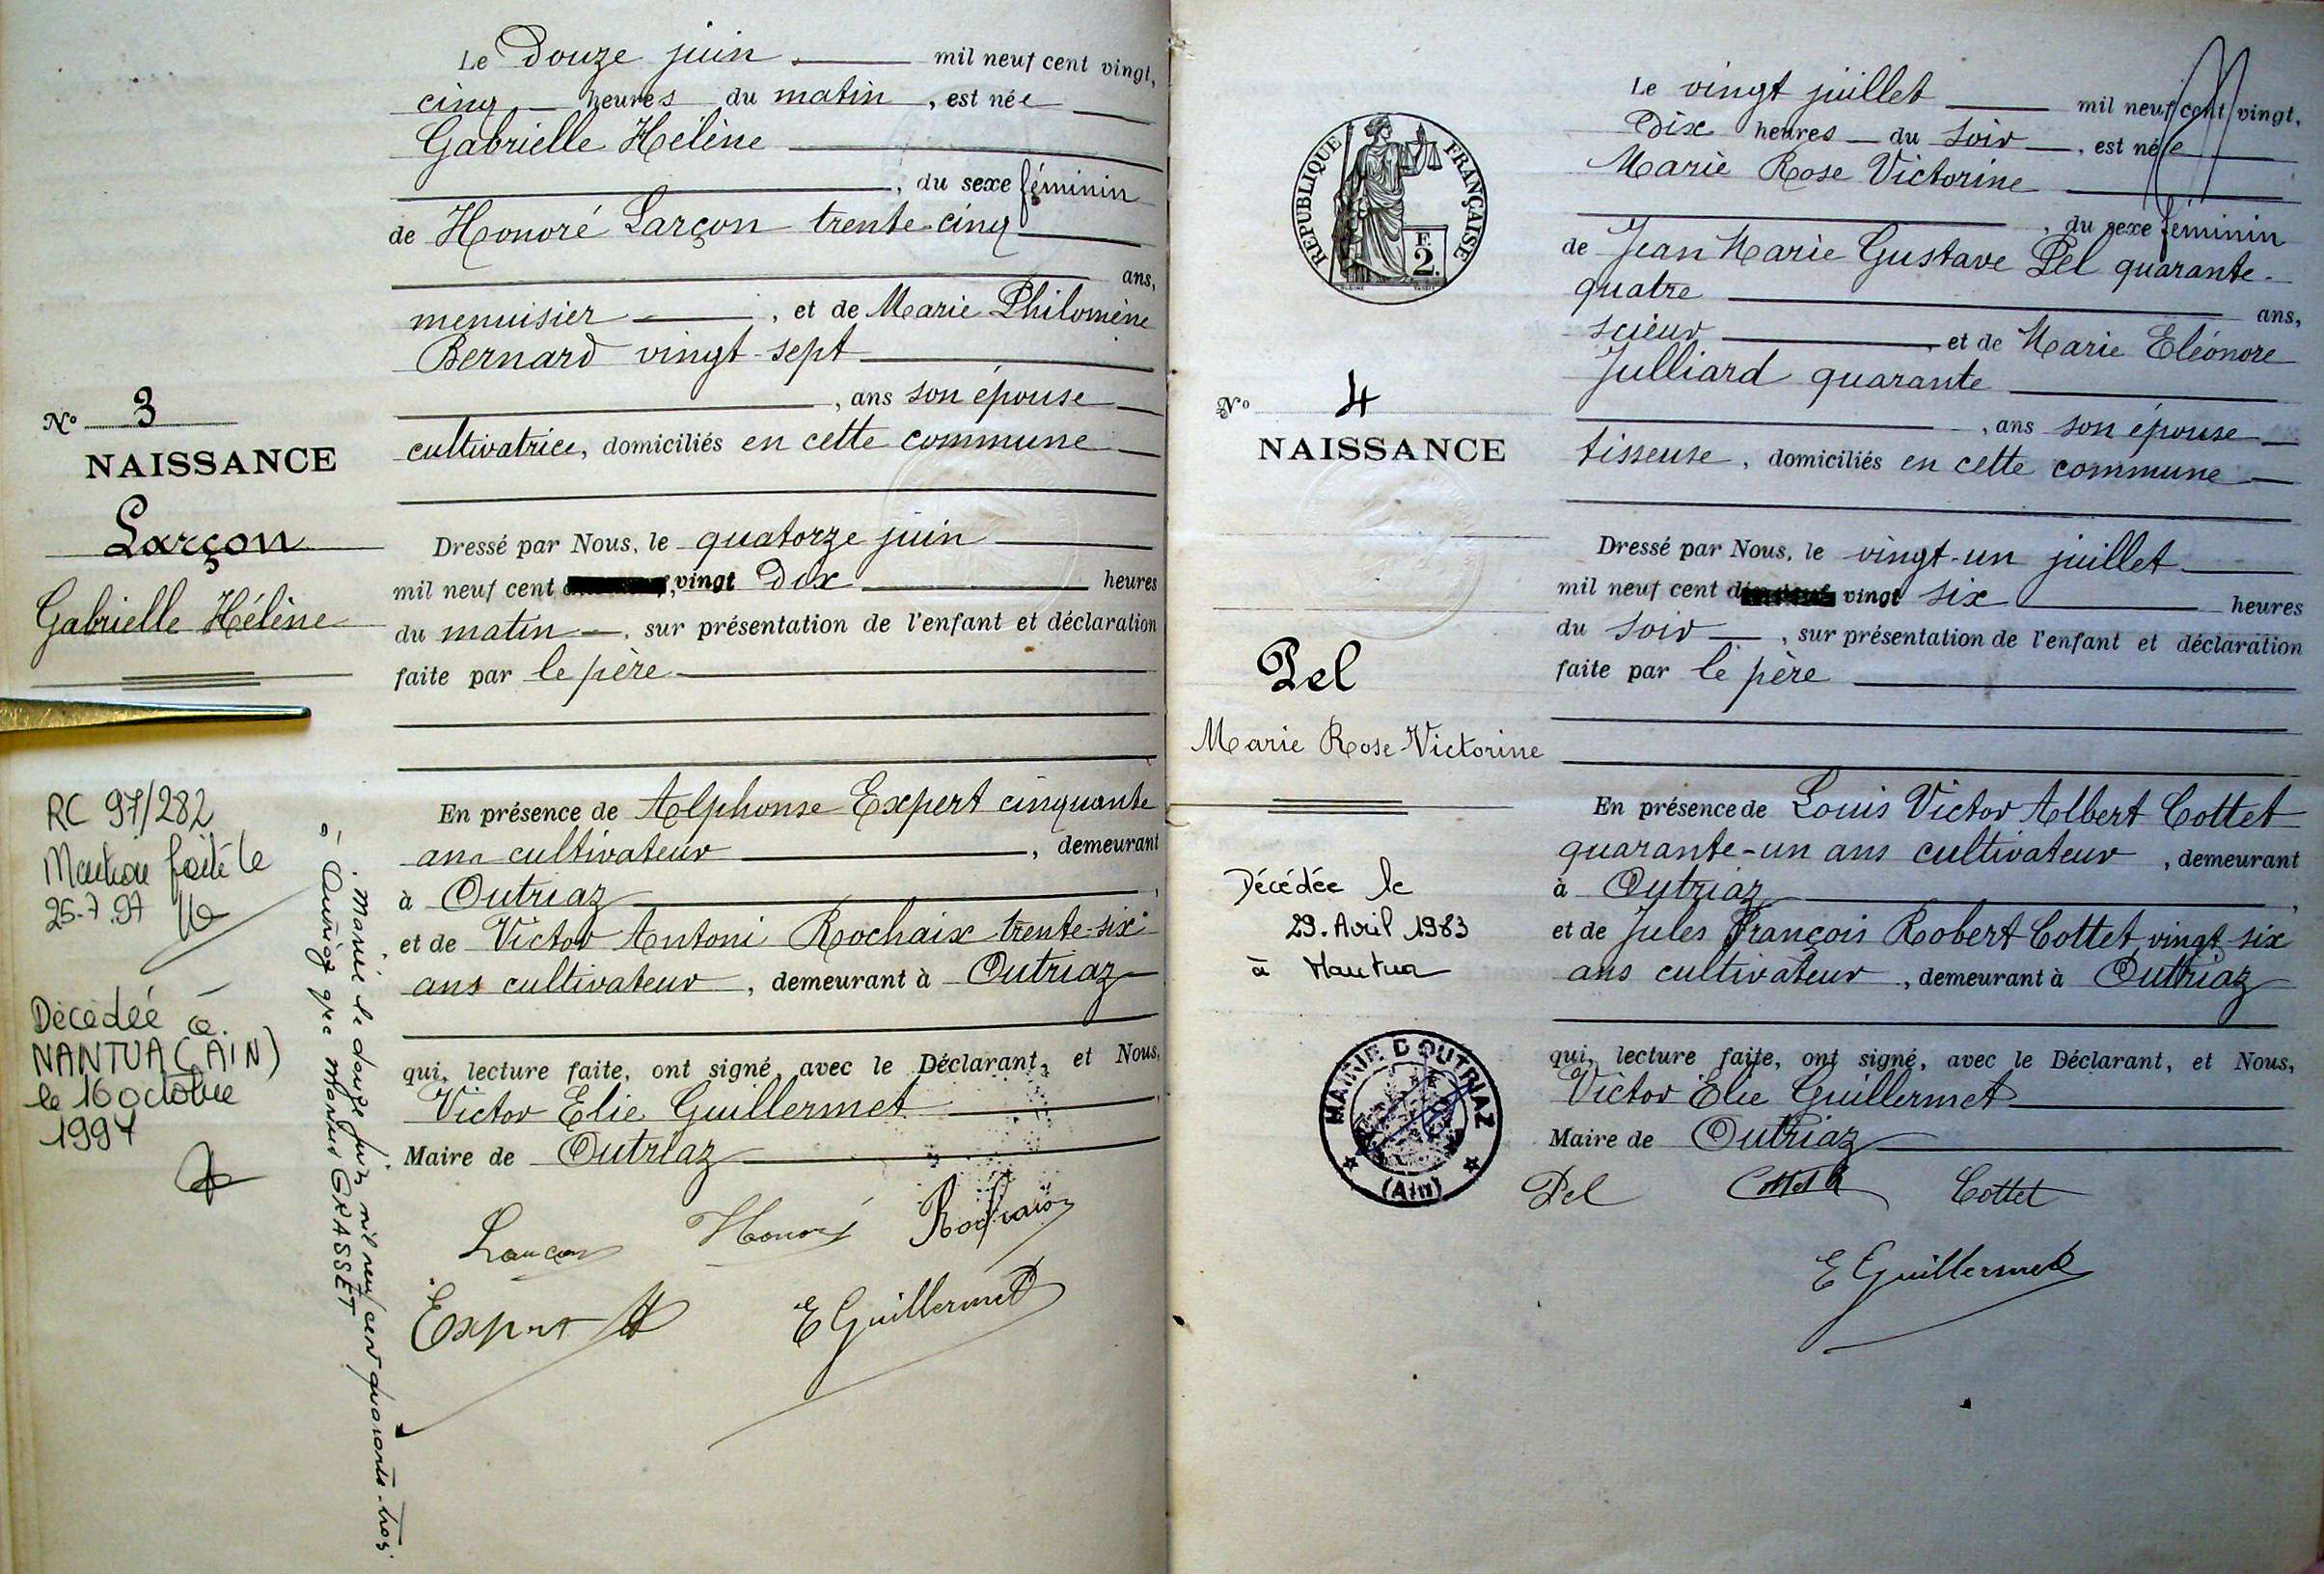 Le Douze juin mil neuf cent vingt,
cinq heures du matin, est née
Gabrielle Hélène
, du sexe féminin
de Honoré Larçon trente-cinq
ans,
menuisier, et de Marie Philomène
Bernard vingt-sept
, ans son épouse
cultivatrice, domiciliés en cette commune
Dressé par Nous, le quatorze juin
mil neuf cent vingt Dix heures
du matin, sur présentation de l'enfant et déclaration
faite par le père
En présence de Alphonse Expert cinquante
ans cultivateur, demeurant
à Outriaz
et de Victor Antoni Rochaix trente-six
ans cultivateur, demeurant à Outriaz
qui, lecture faite, ont signé, avec le Déclarant, et Nous,
Victor Elie Guillermet
Maire de Outriaz
Larçon Honoré Rochaix
Expert A E Guillermet
N° 3
NAISSANCE
Larçon
Gabrielle Hélène
RC 97/282
Mention faite le
25.7.97
Décédée à
NANTUA (AIN)
le 16 octobre
1994
Mariée le douze juin mil neuf cent quarante-trois
à Outriaz avec Marius GRASSET
REPUBLIQUE FRANÇAISE
F.
2.
N° 4
NAISSANCE
Pel
Marie Rose Victorine
Décédée le
29. Avril 1983
à Nantua
MAIRIE D'OUTRIAZ
(Ain)
Le vingt juillet mil neuf cent vingt,
Dix heures du soir, est née
Marie Rose Victorine
, du sexe féminin
de Jean Marie Gustave Pel quarante-
quatre ans,
scieur et de Marie Eléonore
Julliard quarante
, ans son épouse
tisseuse, domiciliés en cette commune
Dressé par Nous, le vingt-un juillet
mil neuf cent vingt six heures
du soir, sur présentation de l'enfant et déclaration
faite par le père
En présence de Louis Victor Albert Cottet
quarante-un ans cultivateur, demeurant
à Outriaz
et de Jules François Robert Cottet vingt-six
ans cultivateur, demeurant à Outriaz
qui, lecture faite, ont signé, avec le Déclarant, et Nous,
Victor Elie Guillermet
Maire de Outriaz
Pel Cottet Cottet
E Guillermet